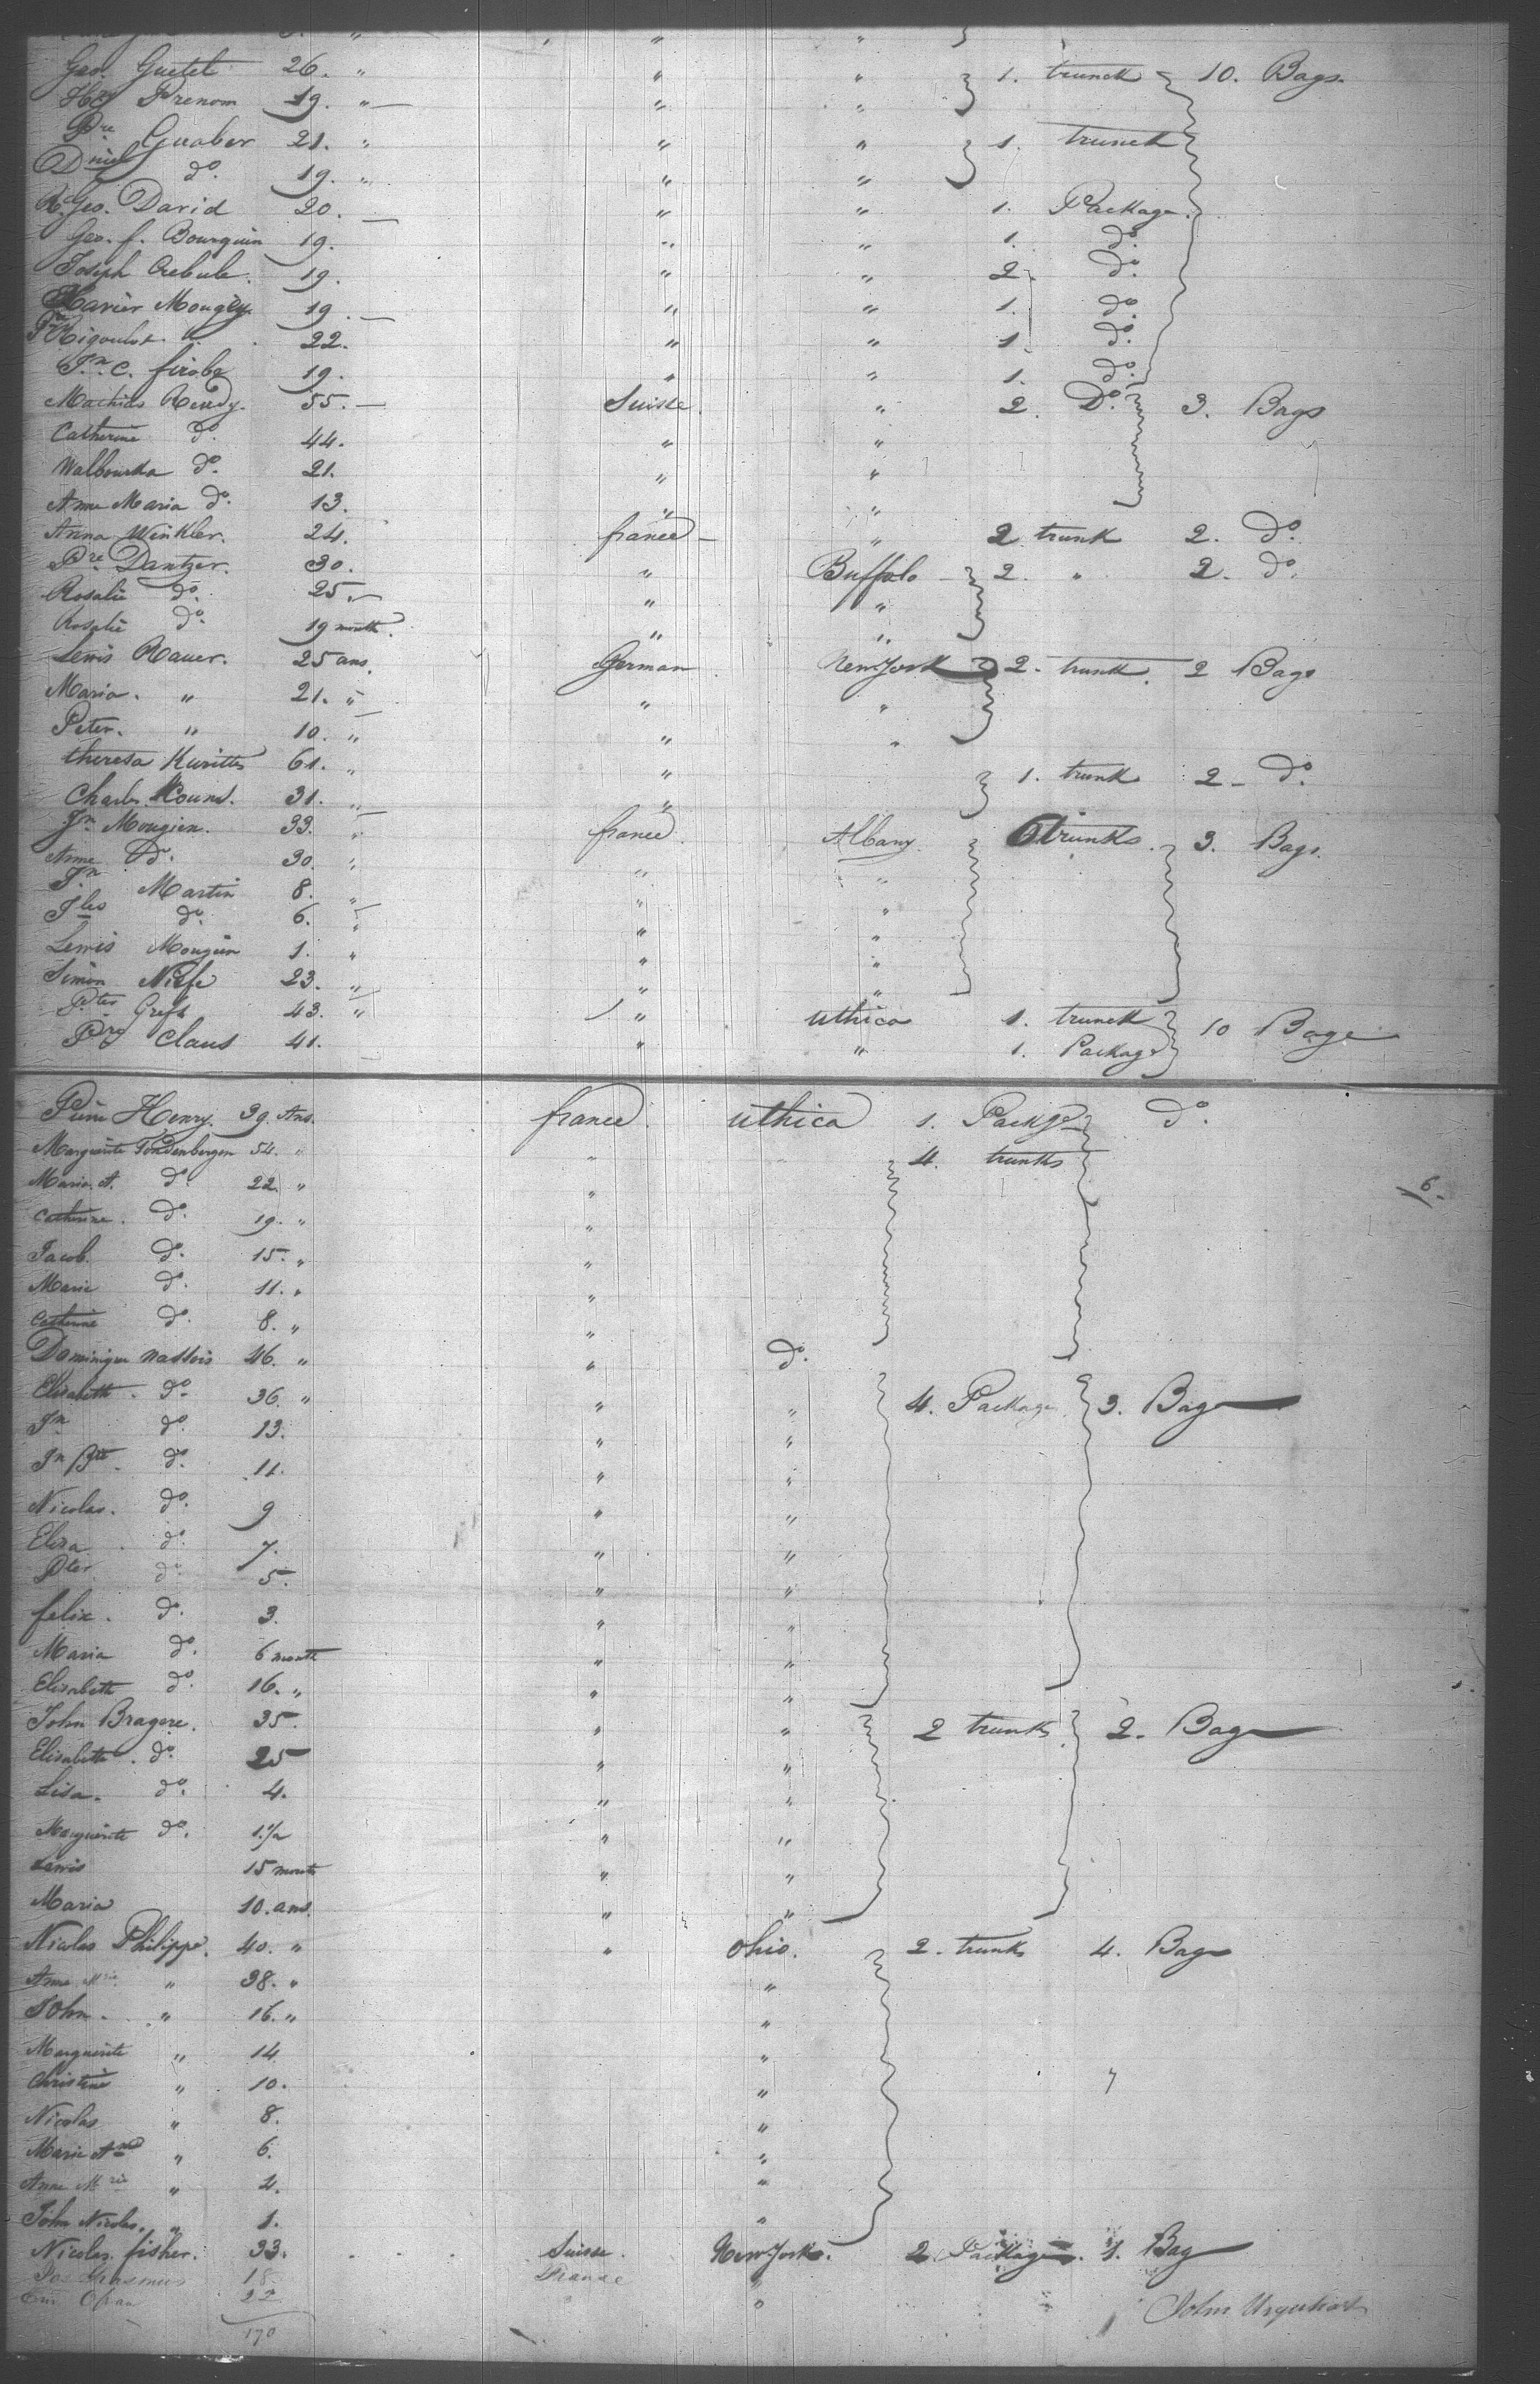 Geo. Guetet 26. " " " 1. trunck 10. Bags.
Hry Prenom 19. " " "
Pre Guaber 21. " " " 1. trunck
Dniel do. 19. " " "
R. Geo. David 20. " " 1. Package.
Geo. f. Bourquin 19. " " 1. do.
Joseph 19. " " 2. do.
Xavier Mougey. 19. " " 1. do.
Rigoulot. 22. " " 1 do.
Jn. C. 19. " " 1. do.
Mathias Rendy. 55. Suisse. " 2. Do. 3. Bags
Catherine do. 44. " "
Walbourka do. 21. " "
Anne Maria do. 13. " "
Anna Winkler. 24. france " 2 trunk 2. do.
Pre Dantzer. 30. " Buffalo 2. " 2. do.
Rosalie do. 25 " " "
Rosalie do. 19 month. " "
Lewis Rauer. 25 ans. German New York 2. trunk. 2 Bags
Maria. " 21. " " "
Peter. " 10. " " "
theresa 61. " " 1. trunk 2 do.
Charles 31. " "
Jn Mougien. 33. " france. Albany. 6 trunks. 3. Bags.
Anne do. 30. " " "
Jn Martin 8. " " "
do. 6. " " "
Lewis Mougien 1. " " "
Simon 23. " " "
Pter 43. " " uthica 1. trunck 10 Bage
Pre Claus 41. " " 1. Package
Henry. 39. Ans. france. uthica 1. Packge do.
Marguerite Tondenbergen 54. " " 4. trunks
Maria. A. do. 22. " " 6.
Catherine. do. 19. " "
Jacob. do. 15. " "
Marie do. 11. " "
Catherine do. 8. " "
Dominique nassois 46. " " do.
Elisabeth. do. 36. " " " 4. Package 3. Bage
Jn do. 13. " "
Jn Bte. do. 11. " "
Nicolas. do. 9 " "
Elisa. do. 7. " "
Pter. do. 5. " "
felix. do. 3. " "
Maria do. 6 month " "
Elisabeth do. 16. " " "
John Bragere. 35. " " 2 trunks 2. Bage
Elisabeth. do. 25 " "
Lisa. do. 4. " "
Marguerite do. 1 1/2 " "
Lewis 15 month " "
Maria 10. ans. " "
Nicolas Philippe. 40. " " Ohio. 2. trunk 4. Bage
Anne Mrie " 38. " "
John. " 16. " "
Marguerite " 14 "
Christine " 10. "
Nicolas " 8. "
Marie Ane " 6. "
Anne Mrie " 4. "
John Nicolas. " 1. "
Nicolas. fisher. 33. Suisse. New York. 2 Packages. 1. Bag
Erasmus 18 France "
22 " John Urquhart
170